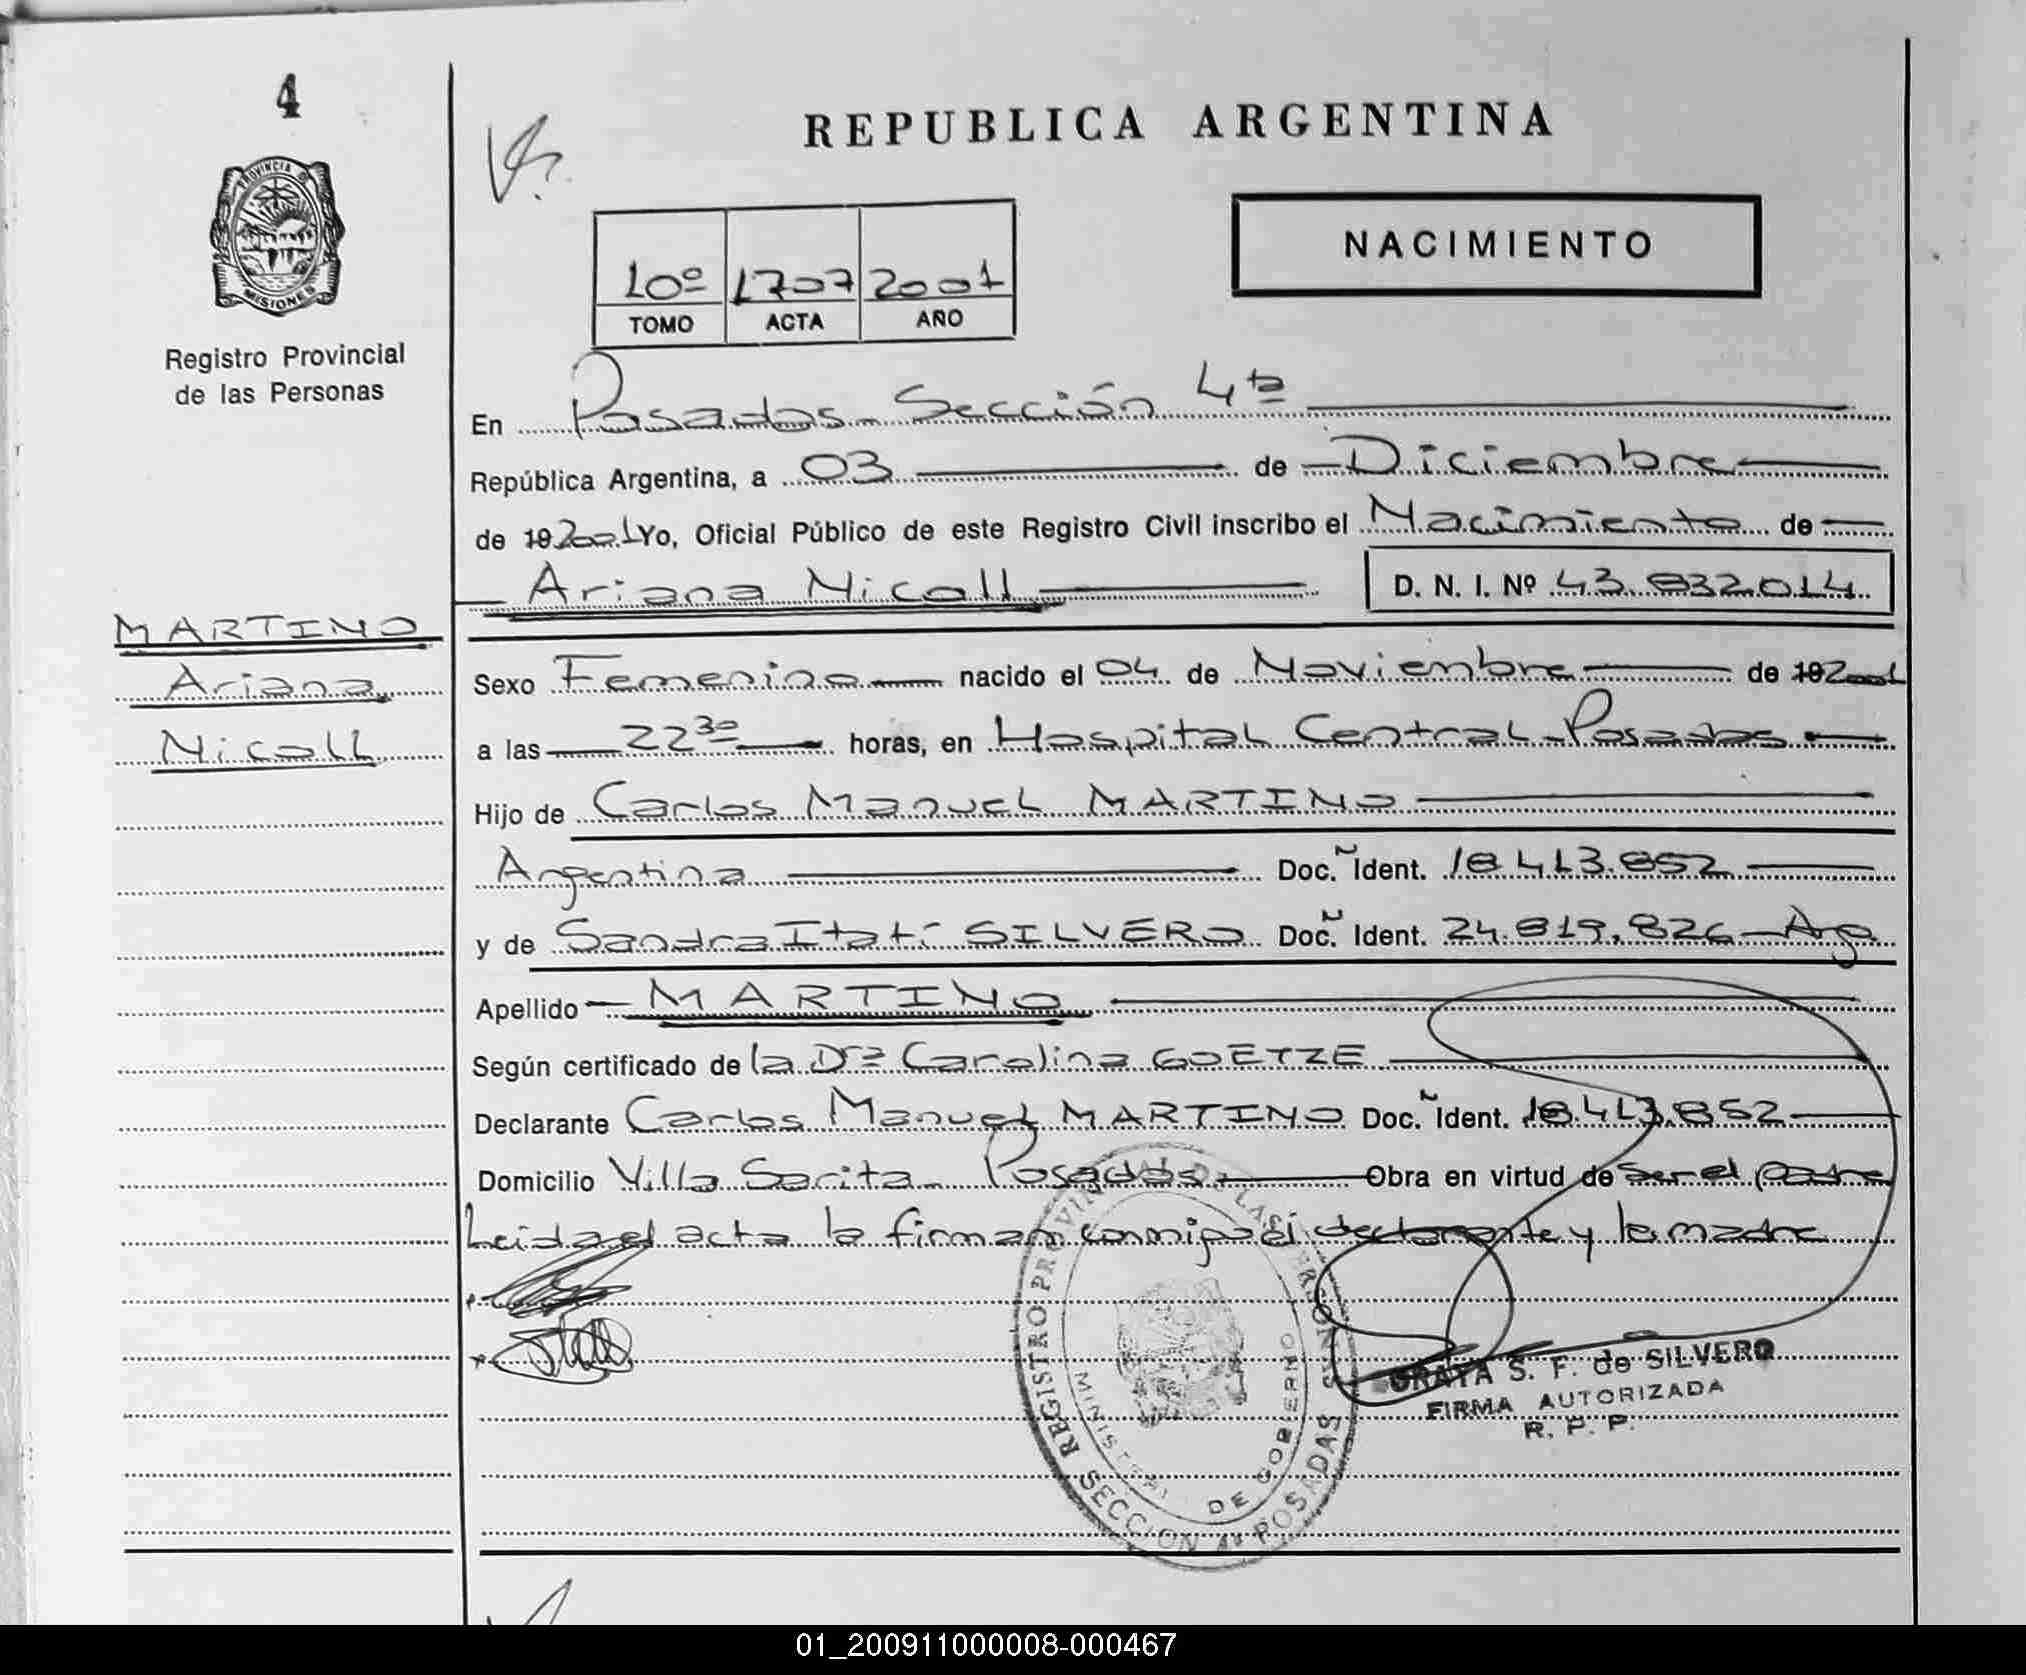 4
PROVINCIA DE
MISIONES
Registro Provincial
de las Personas
REPUBLICA ARGENTINA
NACIMIENTO
10º 1707 2001
TOMO ACTA AÑO
En Posadas Sección 4ta
República Argentina, a 03 de Diciembre
de 192001 Yo, Oficial Público de este Registro Civil inscribo el Nacimiento de
Ariana Nicoll D. N. I. Nº 43.832.014
MARTINO
Ariana
Nicoll
Sexo Femenino nacido el 04 de Noviembre de 192001
a las 22³⁰ horas, en Hospital Central Posadas
Hijo de Carlos Manuel MARTINO
Argentina Doc. Ident. 18.413.852
y de Sandra Itatí SILVERO Doc. Ident. 24.819.826 Ag
Apellido MARTINO
Según certificado de la Dra Carolina GOETZE
Declarante Carlos Manuel MARTINO Doc. Ident. 18.413.852
Domicilio Villa Sarita Posadas Obra en virtud de ser el padre
Leida el acta la firman conmigo el declarante y la madre
REGISTRO PROVINCIAL DE LAS PERSONAS
MINISTERIO DE GOBIERNO
SECCION 4ta POSADAS
S. F. de SILVERO
FIRMA AUTORIZADA
R. P. P.
01_200911000008-000467